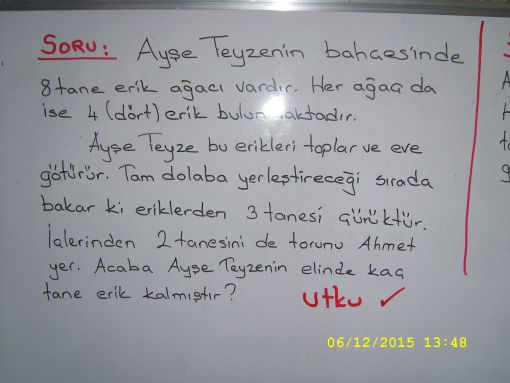 SORU: Ayşe Teyzenin bahçesinde
8 tane erik ağacı vardır. Her ağaç da
ise 4 (dört) erik bulunmaktadır.
Ayşe Teyze bu erikleri toplar ve eve
götürür. Tam dolaba yerleştireceği sırada
bakar ki eriklerden 3 tanesi çürüktür.
İçlerinden 2 tanesini de torunu Ahmet
yer. Acaba Ayşe Teyzenin elinde kaç
tane erik kalmıştır?
utku
06/12/2015 13:48